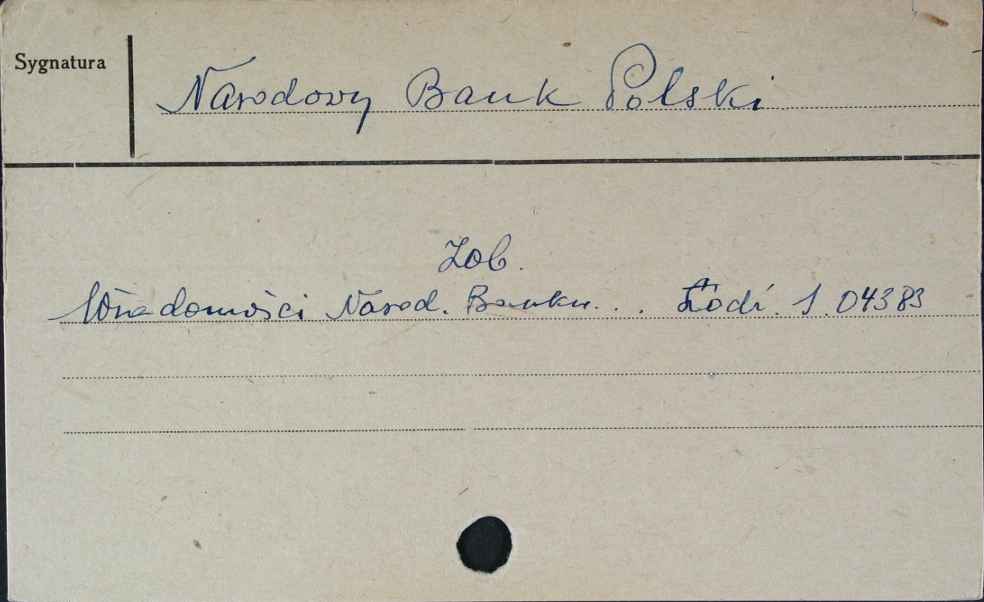 Sygnatura
Narodowy Bank Polski
Zob.
Wiadomości Narod. Banku... Łódź. S. 04383